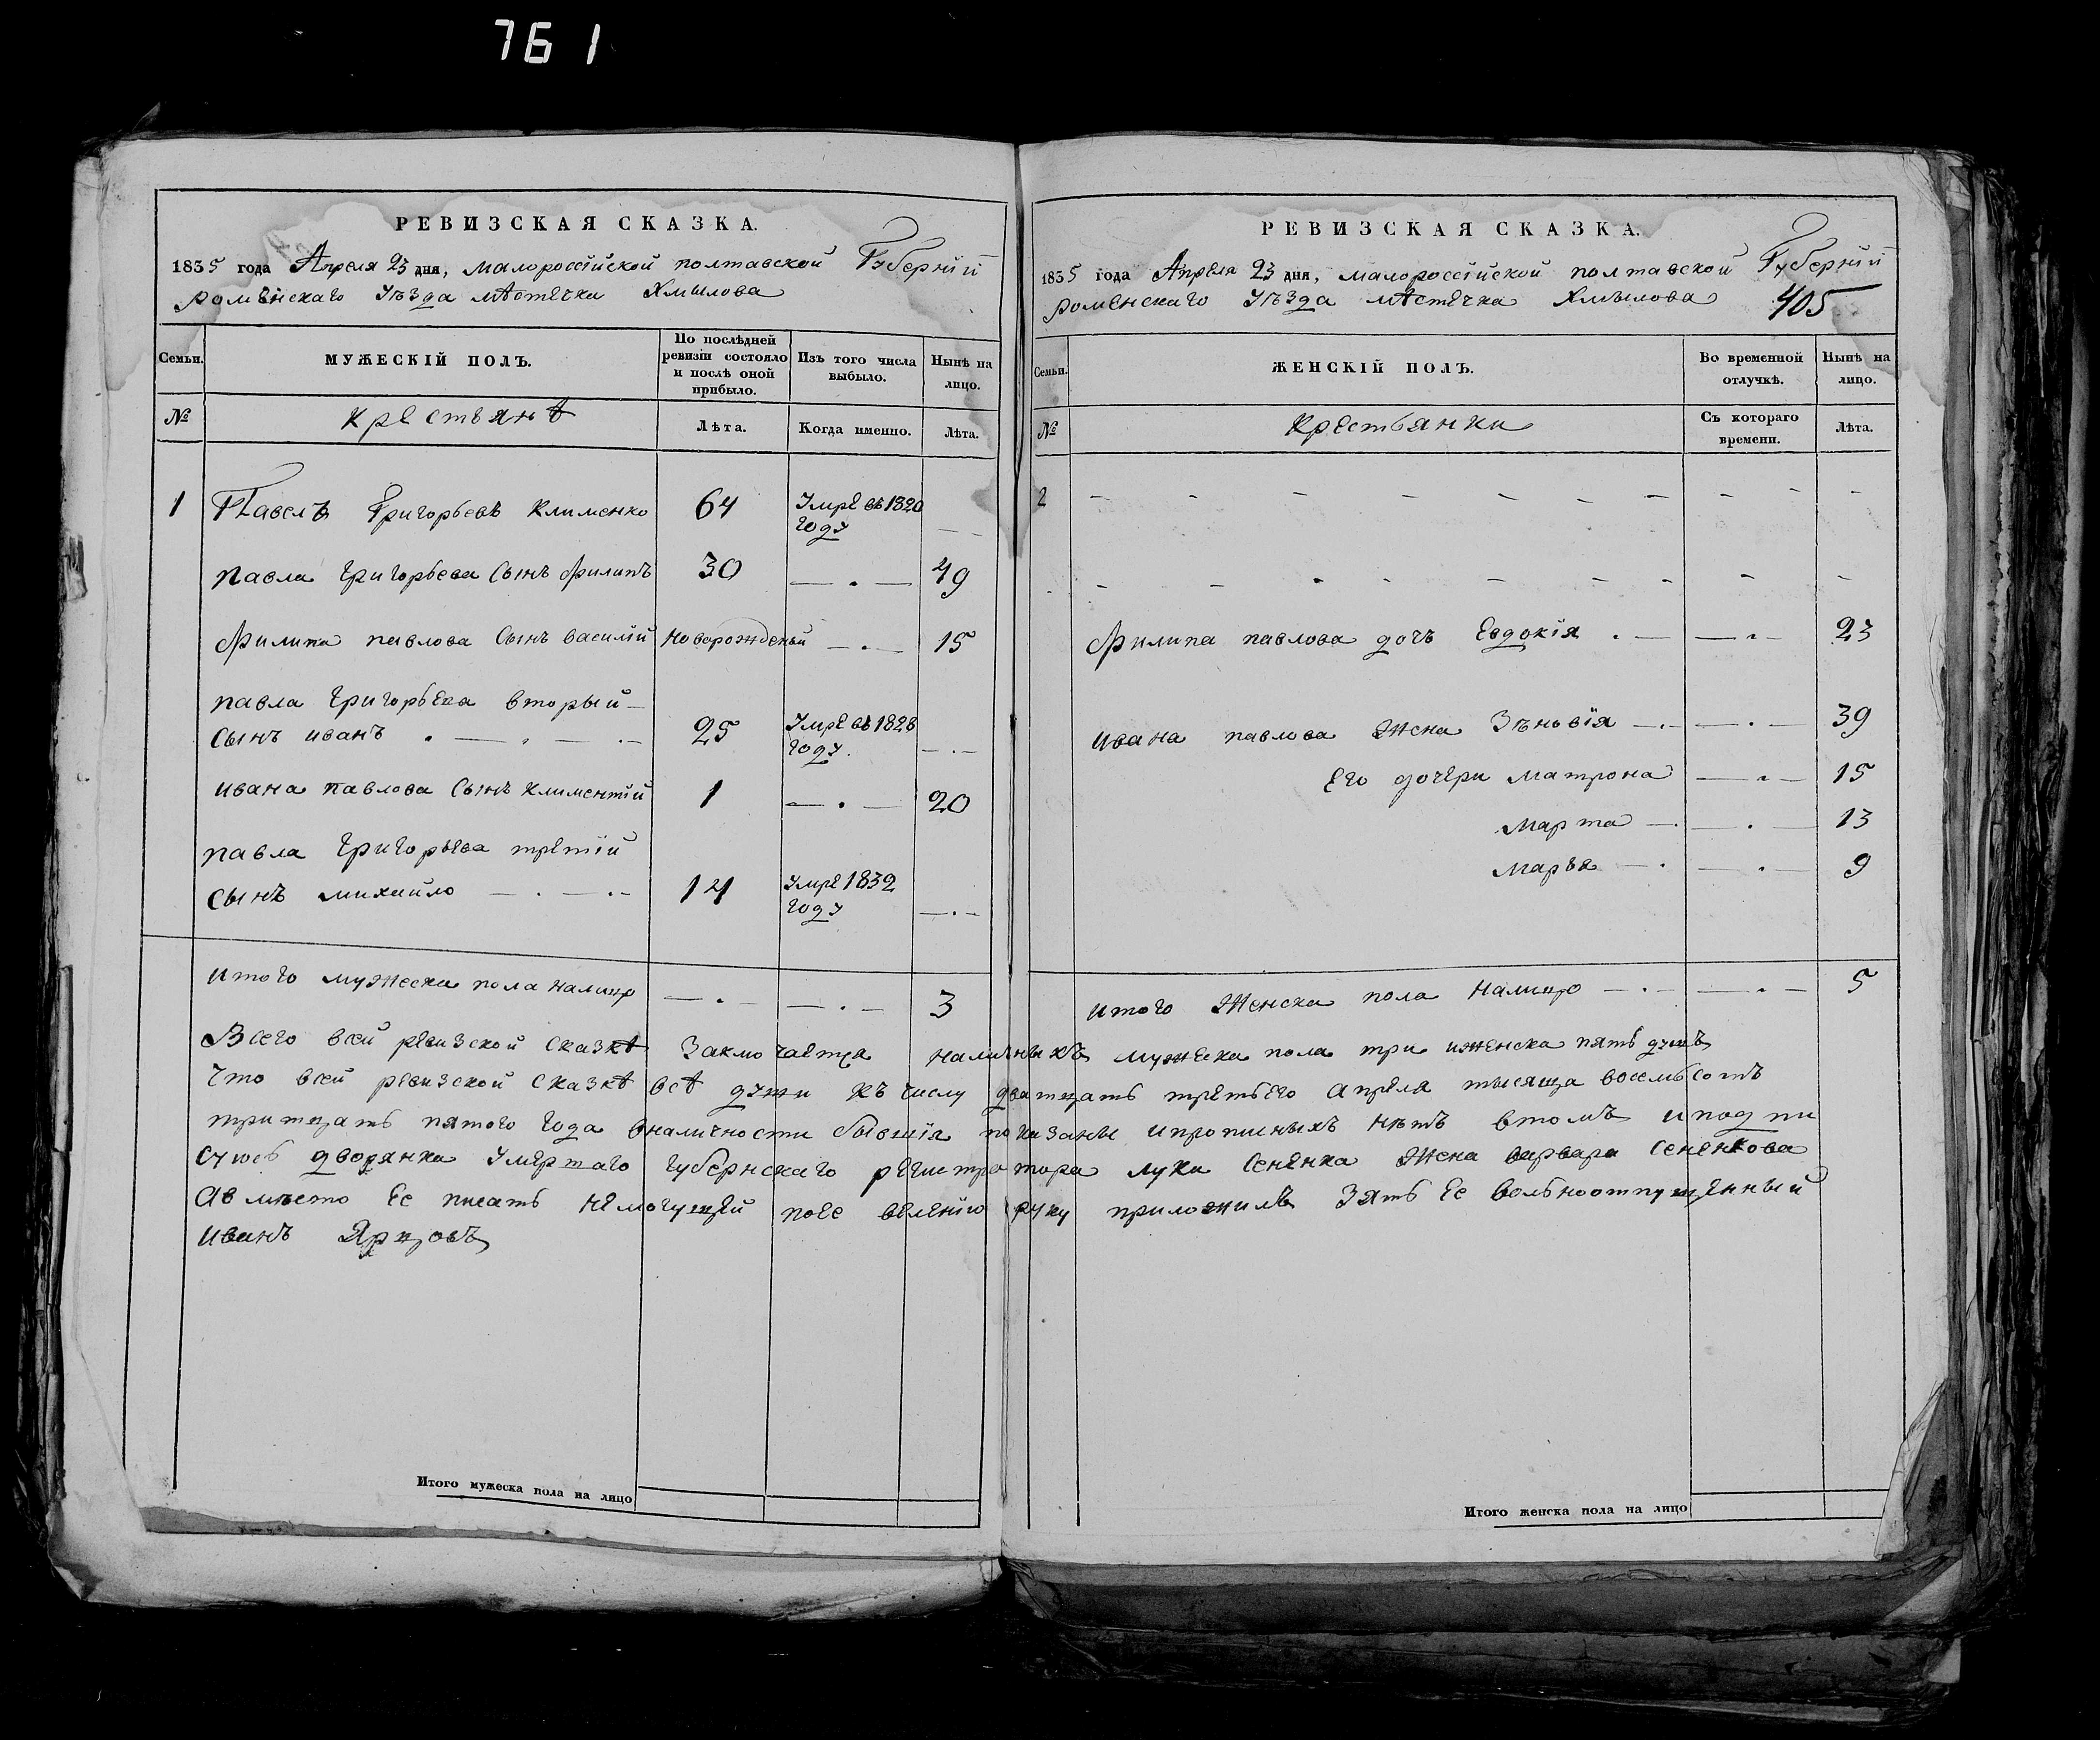 761
РЕВИЗСКАЯ СКАЗКА.
1835 года Апреля 23 дня, малороссійской полтавской Губерніи
роменскаго уѣзда мѣстечка Хмылова
Семьи.
МУЖЕСКІЙ ПОЛЪ.
По послѣдней ревизіи состояло и послѣ оной прибыло.
Изъ того числа выбыло.
Нынѣ на лицо.
№
крестьянѣ
Лѣта.
Когда именно.
Лѣта.
1 Павелъ Григорьевъ Клименко 64 Умре въ 1820
году —
павла григорьева Сынъ филипъ 30 — . — 49
филипа павлова Сынъ василій новорожденый — . — 15
павла григорьева вторый —
Сынъ иванъ . — . — . — 25 Умре въ 1828
году. — . —
ивана павлова Сынъ климентій 1 — . — 20
павла григорьева третій
Сынъ михайло — . — . — 14 Умре 1832
году — . —
итого мужеска пола налицо — . — — . — 3
РЕВИЗСКАЯ СКАЗКА.
1835 года Апреля 23 дня, малороссійской полтавской Губерніи
роменскаго уѣзда мѣстечка Хмылова 405
Семьи.
ЖЕНСКІЙ ПОЛЪ.
Во временной отлучкѣ.
Нынѣ на лицо.
№
крестьянки
Съ котораго времени.
Лѣта.
2 — — — — — — — — — —
— — — — — — — — —
филипа павлова дочъ Евдокія . — — . — 23
ивана павлова жена Зѣновія — . — — . — 39
Его дочери матрона — . — 15
марта — . — . — 13
марья — . — . — 9
итого женска пола налицо — . — — . — 5
Всего всей ревизской сказкѣ заключаетця наличныхъ мужеска пола три иженска пять душъ
что всей ревизской сказкѣ всѣ души къ числу дватцать третьего апреля тысяща восемьсотъ
тритцать пятого года вналичности бывшія показаны ипрописныхъ нѣтъ втомъ иподпи
суюсь дворянка умертаго губернскаго регистратора луки Сененка жена варвара Сененкова
авместо Ее писать немогущей поее веленію руку приложилъ зять Ее вольноотпущенный
иванъ Ярцовъ
Итого мужеска пола на лицо
Итого женска пола на лицо